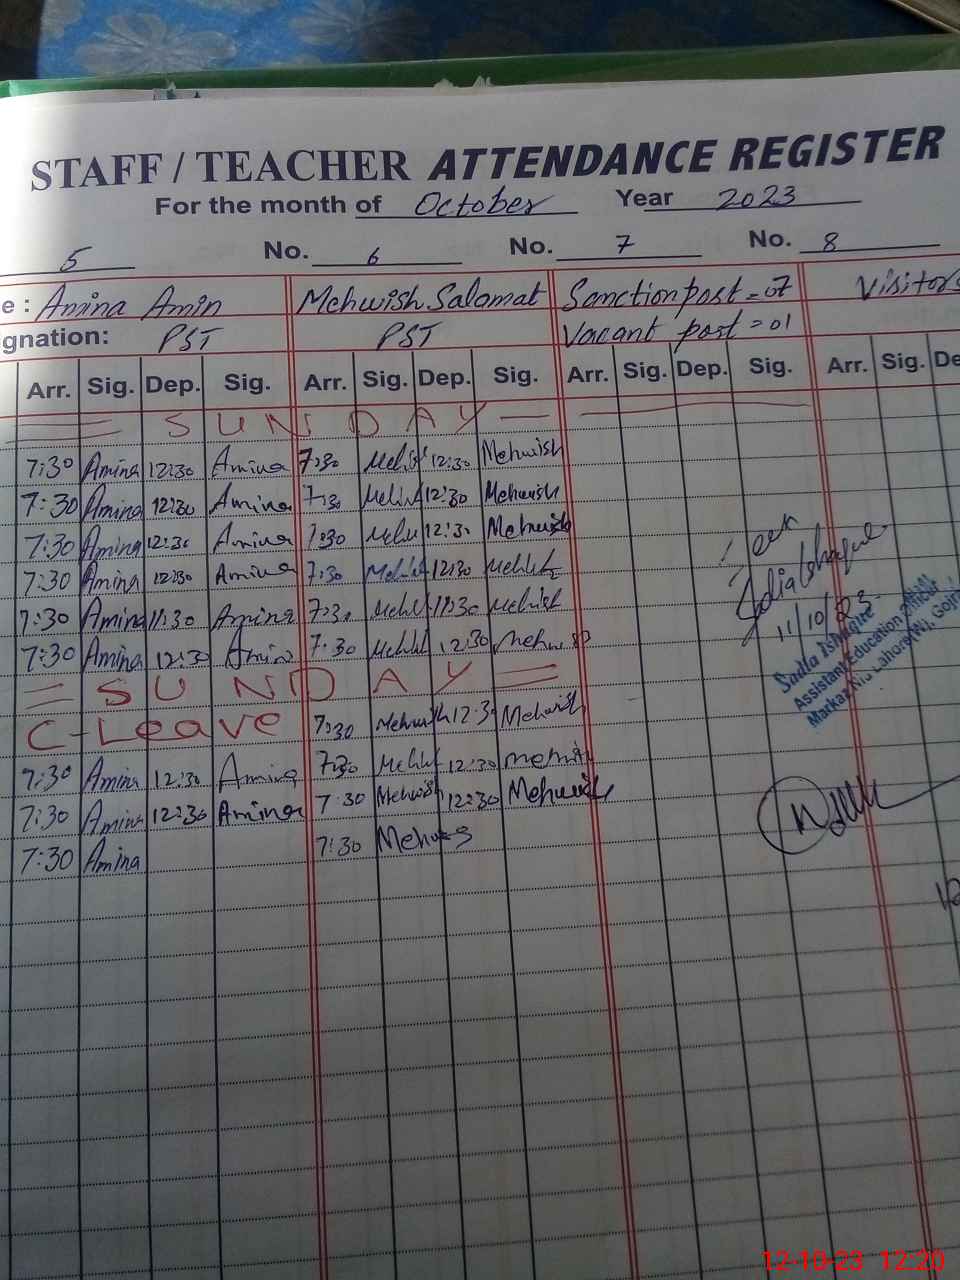 STAFF / TEACHER ATTENDANCE REGISTER
For the month of October Year 2023
5 No. 6 No. 7 No. 8
e : Amina Amin Mehwish Salamat Sanction post = 07 Visitors
gnation: PST PST Vacant post = 01
Arr. Sig. Dep. Sig. Arr. Sig. Dep. Sig. Arr. Sig. Dep. Sig. Arr. Sig. De
= SUNDAY —
7:30 Amina 12:30 Amina 7:30 12:30 Mehwish
7:30 Amina 12:30 Amina 7:30 12:30 Mehwish
7:30 Amina 12:30 Amina 7:30 12:30 Mehwish
7:30 Amina 12:30 Amina 7:30 12:30
7:30 Amina 11:30 Amina 7:30 11:30
7:30 Amina 12:30 Amina 7:30 12:30
= SUNDAY =
C-Leave 7:30 Mehwish 12:30 Mehwish
7:30 Amina 12:30 Amina 7:30 12:30
7:30 Amina 12:30 Amina 7:30 Mehwish 12:30 Mehwish
7:30 Amina 7:30
11/10/23
Sadia Ishaque
Assistant Education Officer
12-10-23 12:20